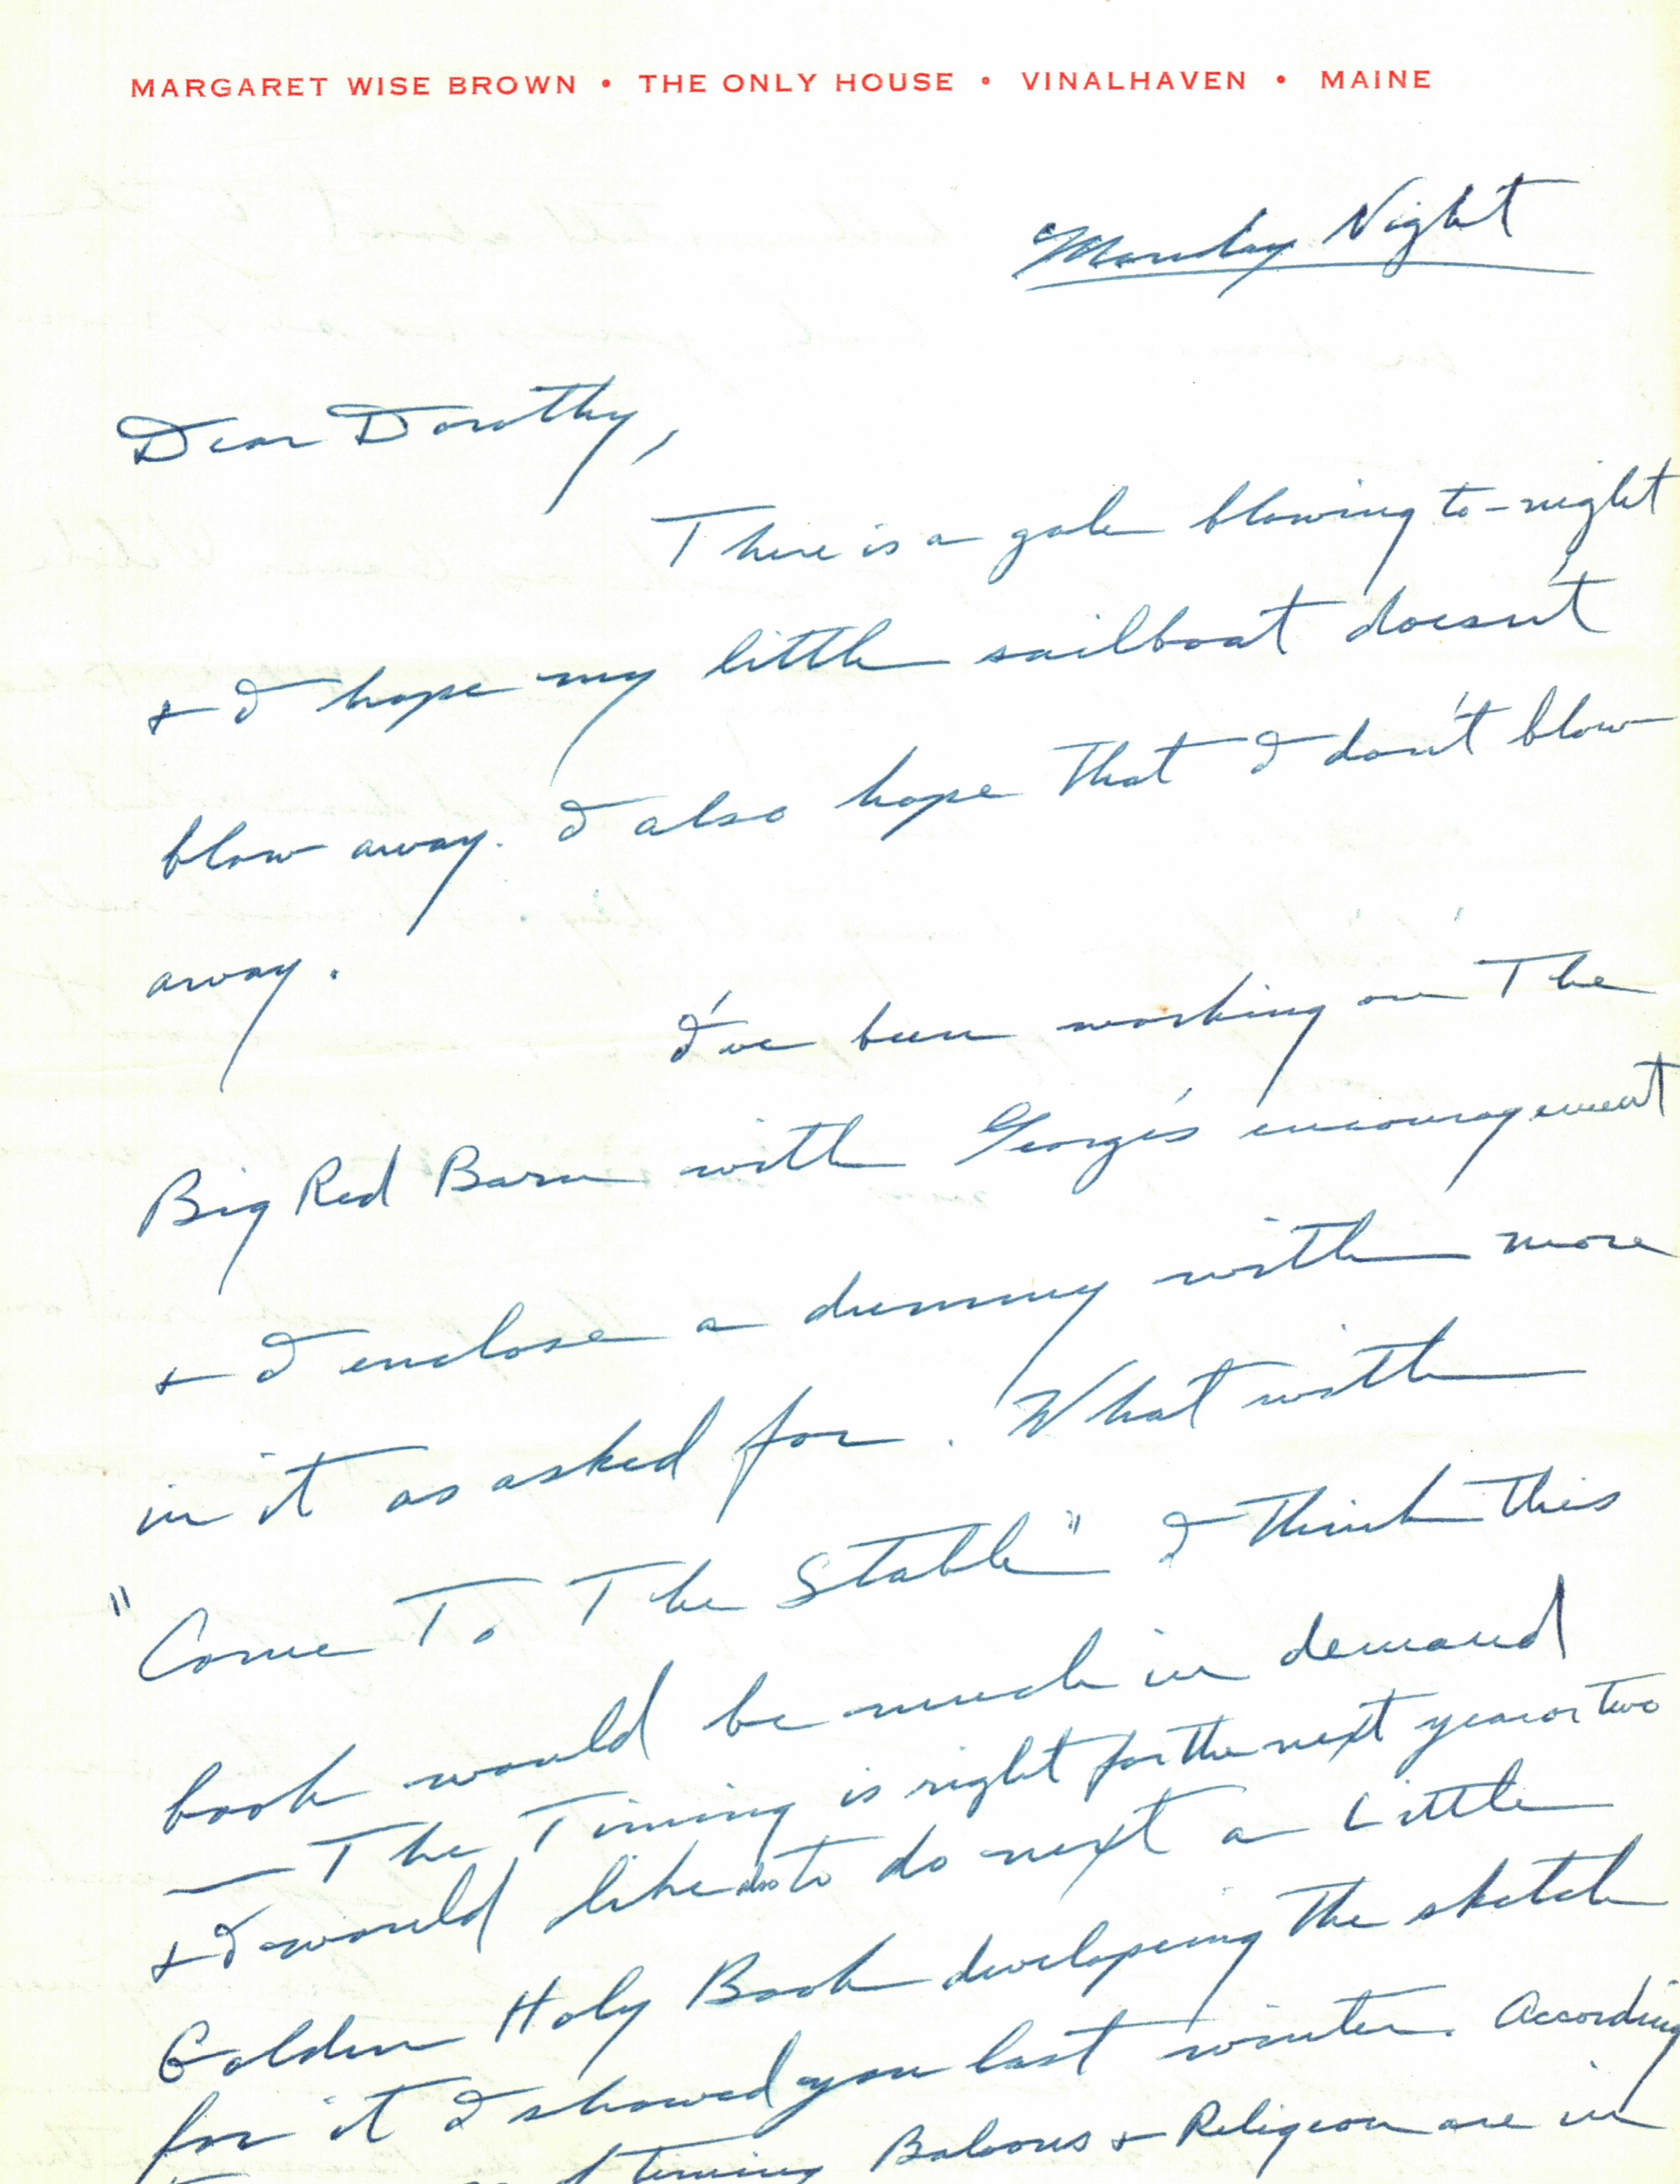 MARGARET WISE BROWN • THE ONLY HOUSE • VINALHAVEN • MAINE
Monday Night
Dear Dorothy,
There is a gale blowing to-night
+ I hope my little sailboat doesn't
blow away. I also hope that I don't blow
away.
I've been working on The
Big Red Barn with George's encouragement
+ I enclose a dummy with more
in it as asked for. What with
"Come To The Stable" I think this
book would be much in demand
— The Timing is right for the next year or two
+ I would like also to do next a Little
Golden Holy Book developing the sketch
for it I showed you last winter. According
timing Baloons + Religion are in